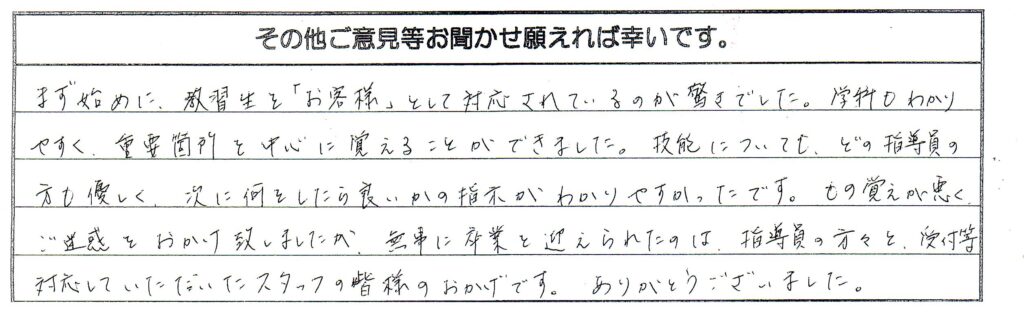 その他ご意見等お聞かせ願えれば幸いです。
まず始めに、教習生を「お客様」として対応されているのが驚きでした。学科もわかり
やすく、重要箇所を中心に覚えることができました。技能についても、どの指導員の
方も優しく、次に何をしたら良いかの指示がわかりやすかったです。もの覚えが悪く、
ご迷惑をおかけ致しましたが、無事に卒業を迎えられたのは、指導員の方々と、受付等
対応していただいたスタッフの皆様のおかげです。ありがとうございました。